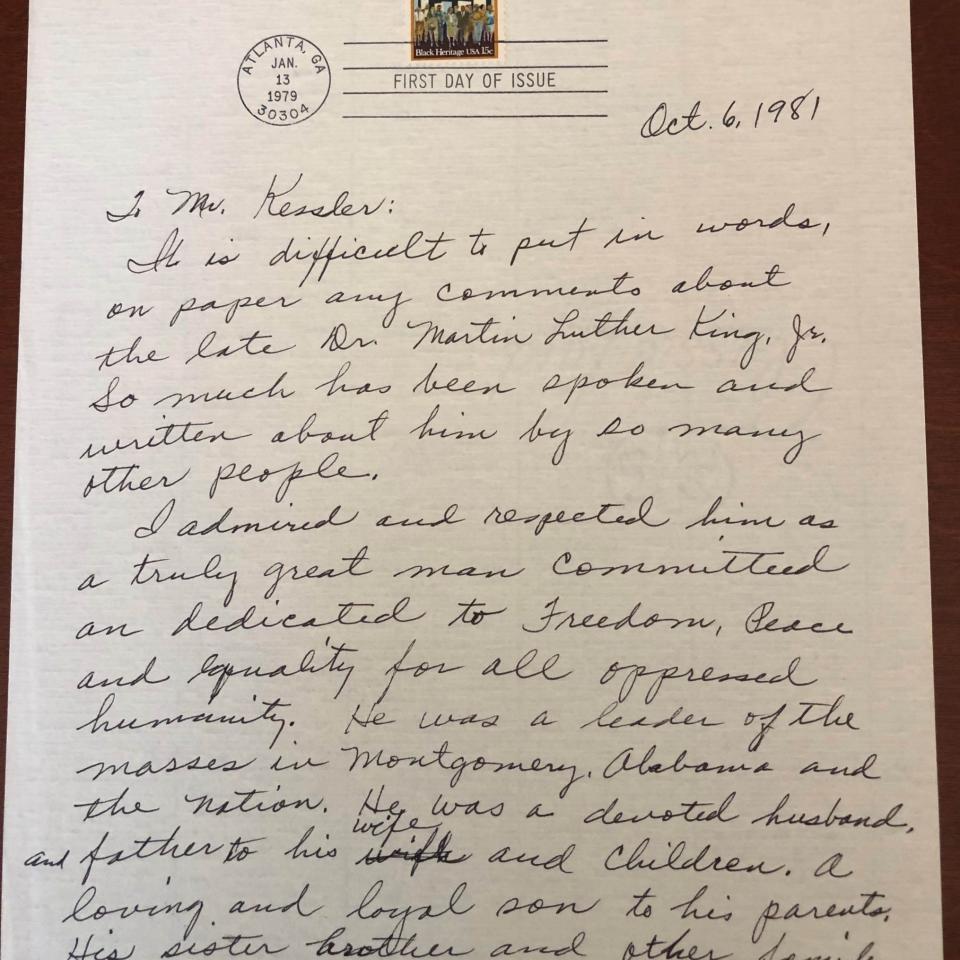 Black Heritage USA 15c
ATLANTA, GA
JAN.
13
1979
30304
FIRST DAY OF ISSUE
Oct. 6, 1981
To Mr. Kessler:
It is difficult to put in words,
on paper any comments about
the late Dr. Martin Luther King, Jr.
So much has been spoken and
written about him by so many
other people.
I admired and respected him as
a truly great man committed
an dedicated to Freedom, Peace
and Equality for all oppressed
humanity. He was a leader of the
masses in Montgomery, Alabama and
the nation. He was a devoted husband,
and father to his wife and children. A
loving and loyal son to his parents.
His sister brother and other family